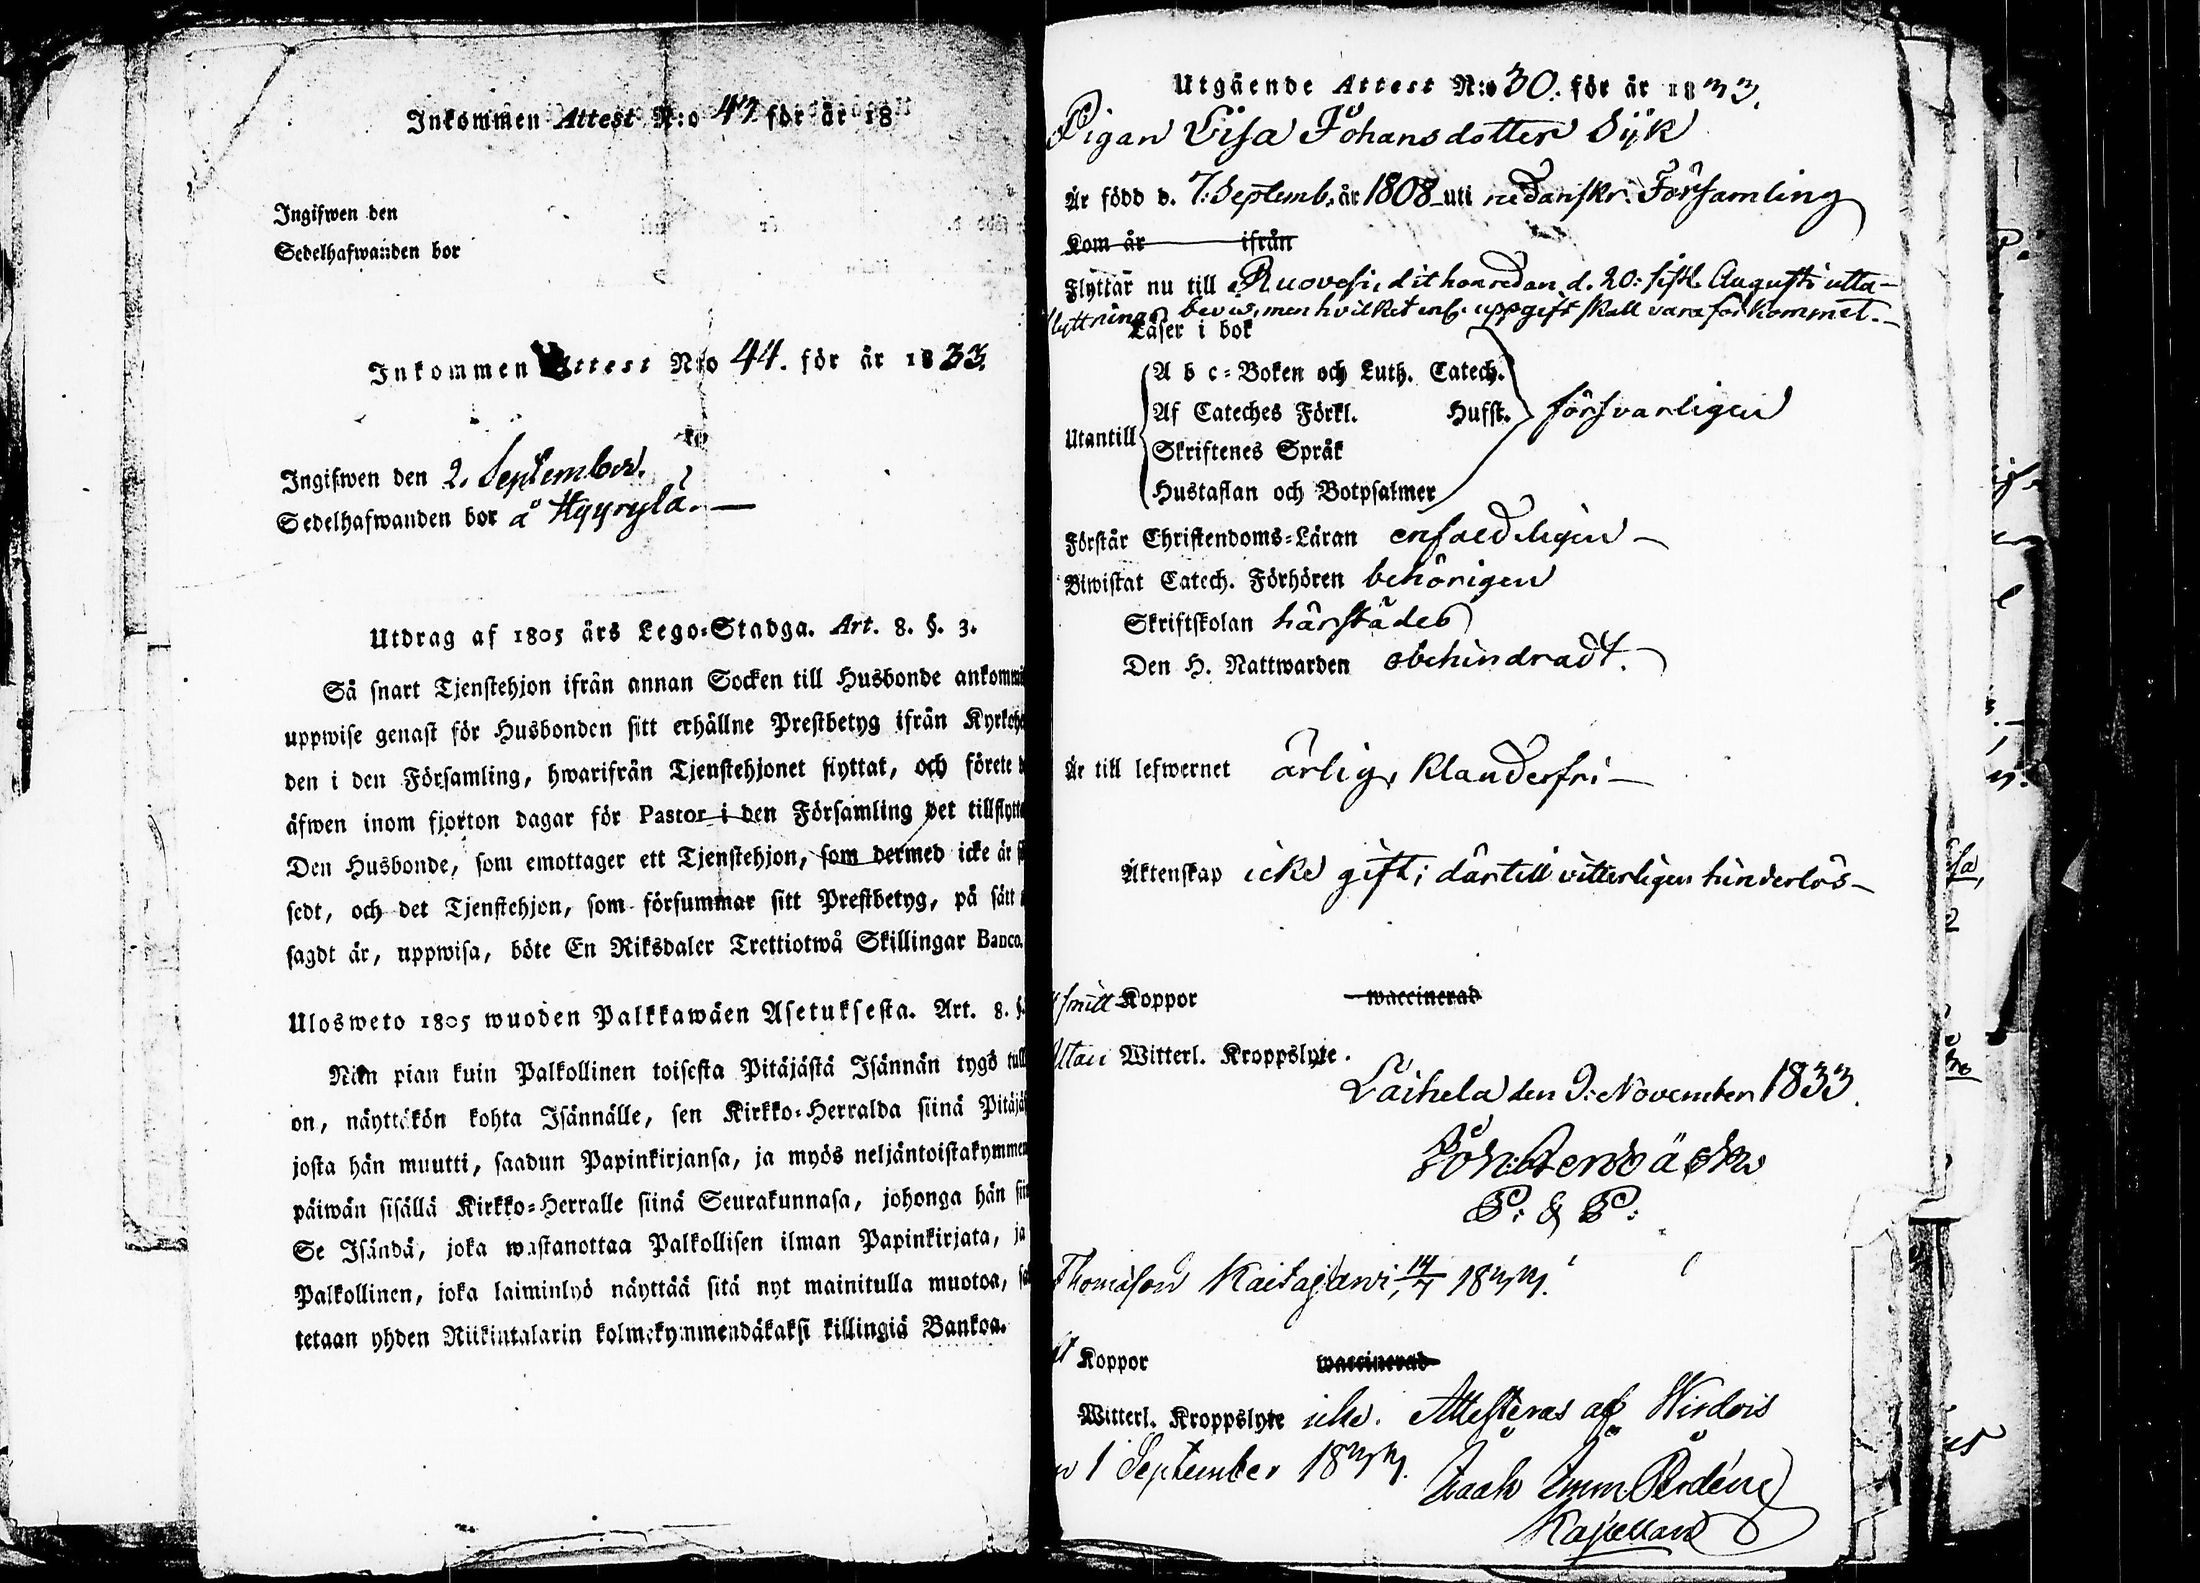 Inkommen Attest N:o 47. för år 18
Ingifwen den
Sedelhafwanden bor
Inkommen Attest N:o 44. för år 1833.
Ingifwen den 2. September.
Sedelhafwanden bor å Hyyrylä. —
Utdrag af 1805 års Lego-Stadga. Art. 8. §. 3.
Så snart Tjenstehjon ifrån annan Socken till Husbonde ankommi
uppwise genast för Husbonden sitt erhållne Prestbetyg ifrån Kyrkohe
den i den Församling, hwarifrån Tjenstehjonet flyttat, och förete d
äfwen inom fjorton dagar för Pastor i den Församling det tillflytta
Den Husbonde, som emottager ett Tjenstehjon, som dermed icke är f
sedt, och det Tjenstehjon, som försummar sitt Prestbetyg, på sätt
sagdt är, uppwisa, böte En Riksdaler Trettiotwå Skillingar Banco.
Ulosweto 1805 wuoden Palkkawäen Asetuksesta. Art. 8. §.
Niin pian kuin Palkollinen toisesta Pitäjästä Isännän tygö tull
on, näyttäkön kohta Isännälle, sen Kirkko-Herralda siinä Pitäjäs
josta hän muutti, saadun Papinkirjansa, ja myös neljäntoistakymmen
päiwän sisällä Kirkko-Herralle siinä Seurakunnasa, johonga hän sii
Se Isändä, joka wastanottaa Palkollisen ilman Papinkirjata, ja
Palkollinen, joka laiminlyö näyttää sitä nyt mainitulla muotoa, sa
tetaan yhden Riikintalarin kolmekymmendäkaksi killingiä Bankoa.
Utgående Attest N:o 30. för år 1833.
Pigan Lisa Johansdotter Syk
Är född d. 7. Septemb. år 1808 uti nedanskr. Församling
Kom år ifrån
Flyttar nu till Ruovesi, dit hon redan d. 20: sistl. Augusti utta-
flyttnings bevis, men hvilket enl. uppgift skall vara förkommet. —
Läser i bok
A b c-Boken och Luth. Catech.
Af Cateches Förkl. Husst. försvarligen
Utantill
Skriftenes Språk
Hustaflan och Botpsalmer
Förstår Christendoms-Läran enfaldeligen —
Biwistat Catech. Förhören behörigen
Skriftskolan härstädes
Den H. Nattwarden obehindradt.
Är till lefwernet ärlig, klanderfri —
Äktenskap icke gift; därtill vitterligen hinderlös —
Koppor waccinerad
Utan Witterl. Kroppslyte.
Laihela den 9: November 1833.
P: & P:
Thomasson Kaitajärwi, 14/7 1833.
Koppor waccinerad
Witterl. Kroppslyte icke. Attesteras af Wirdois
1 September 1833.
Isaak Emm.
Kapellan